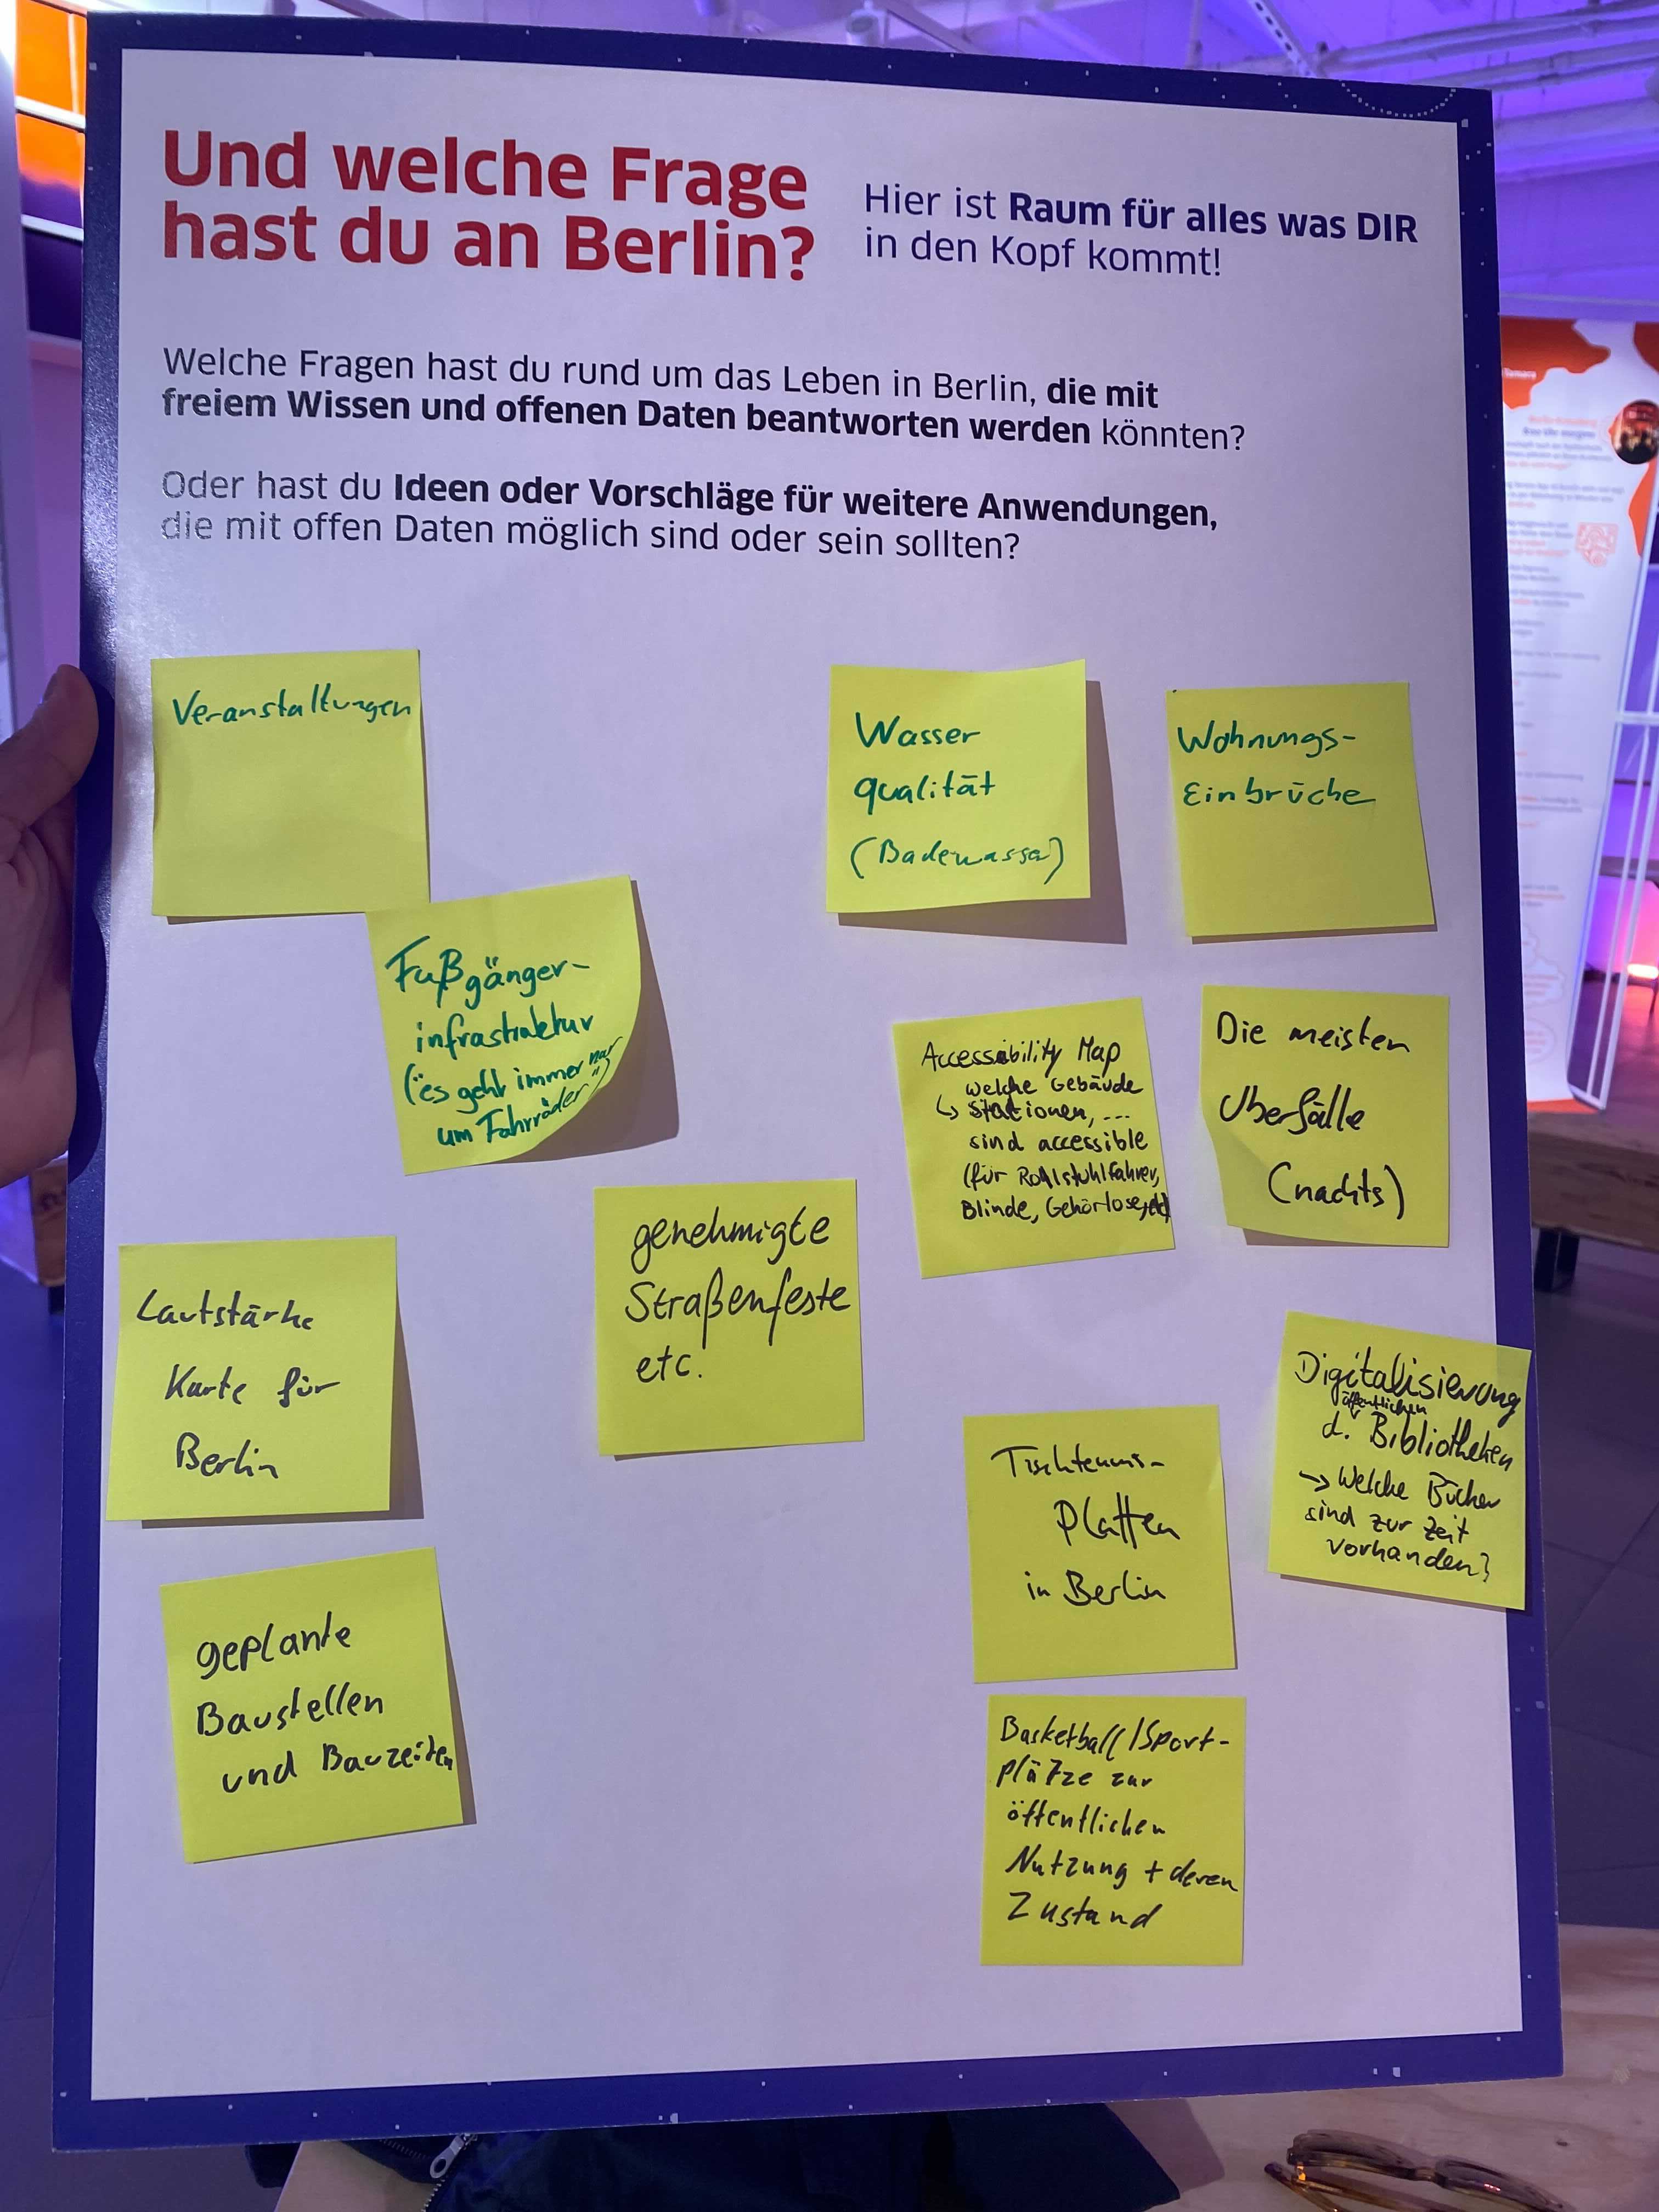 Und welche Frage
hast du an Berlin?
Hier ist Raum für alles was DIR
in den Kopf kommt!
Welche Fragen hast du rund um das Leben in Berlin, die mit
freiem Wissen und offenen Daten beantworten werden könnten?
Oder hast du Ideen oder Vorschläge für weitere Anwendungen,
die mit offen Daten möglich sind oder sein sollten?
Veranstaltungen
Wasser
qualität
(Badewasser)
Wohnungs-
Einbrüche
Fußgänger-
infrastruktur
("es geht immer nur
um Fahrräder")
Accessibility Map
welche Gebäude
↳ Stationen, ...
sind accessible
(für Rollstuhlfahrer,
Blinde, Gehörlose, etc)
Die meisten
Überfälle
(nachts)
genehmigte
Straßenfeste
etc.
Lautstärke
Karte für
Berlin
Digitalisierung
öffentlichen
d. Bibliotheken
→ Welche Bücher
sind zur Zeit
vorhanden?
Tischtennis-
Platten
in Berlin
geplante
Baustellen
und Bauzeiten
Basketball/Sport-
plätze zur
öffentlichen
Nutzung + deren
Zustand